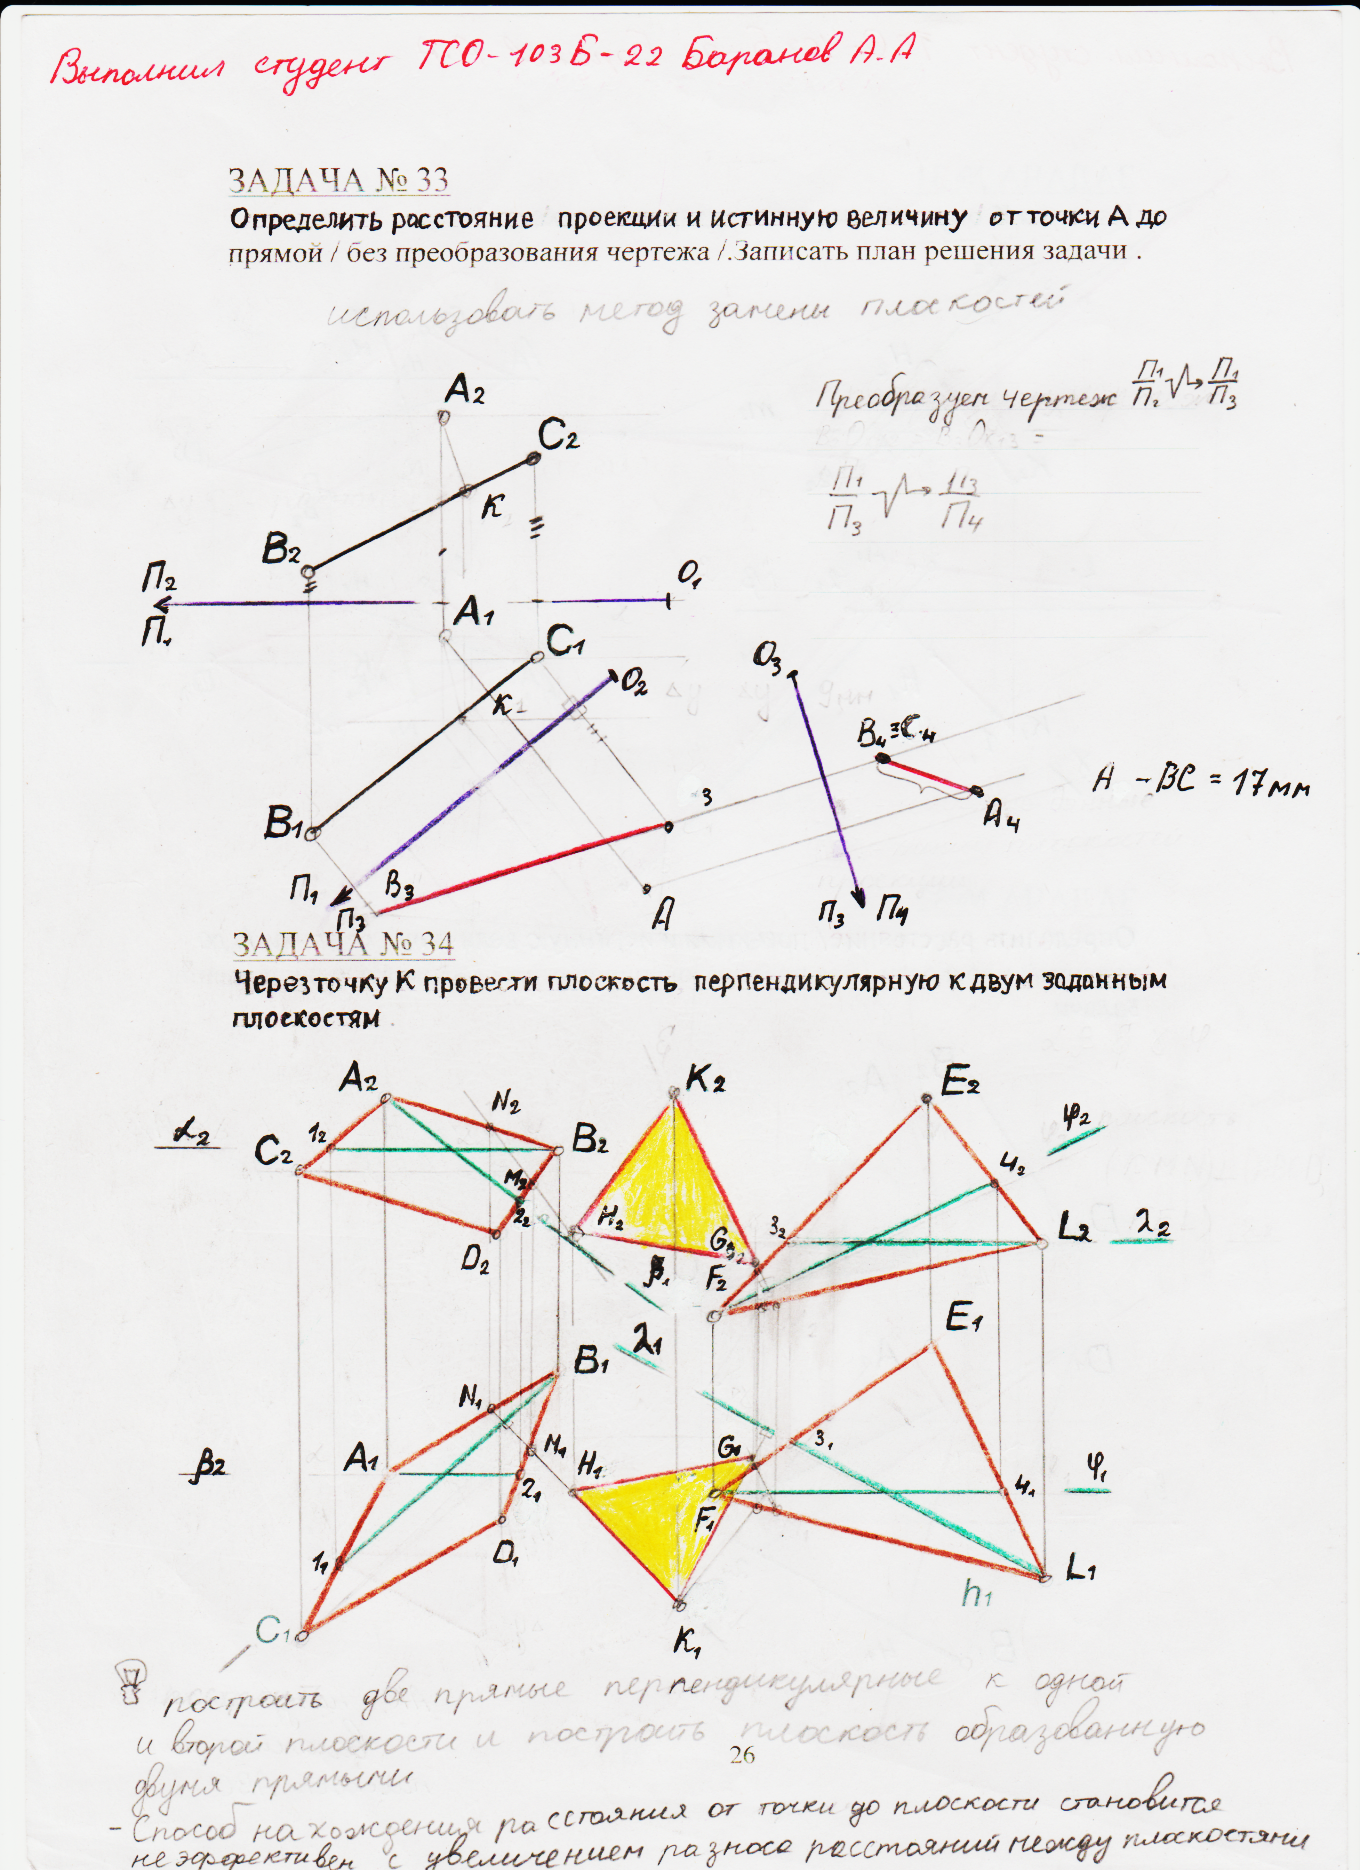 Выполнил студент ПСО-103Б-22 Баранов А.А
ЗАДАЧА № 33
Определить расстояние проекции и истинную величину от точки А до
прямой / без преобразования чертежа /.Записать план решения задачи .
использовать метод замены плоскостей
A2
C2
Преобразуем чертеж П1/П2 П1/П3
К
П1/П3 П3/П4
B2
П2
П1
O1
A1
C1
O2
O3
K1
B4≡C4
A - BC = 17мм
3
A4
B1
B3
П1
П3
A
П3 П4
ЗАДАЧА № 34
Через точку К провести плоскость перпендикулярную к двум заданным
плоскостям .
A2
N2
K2
E2
φ2
α2
C2
12
B2
M2
22
H2
G2
32
42
L2
λ2
D2
β1
F2
E1
λ1
B1
N1
M1
β2
A1
21
H1
G1
31
41
φ1
F1
D1
11
L1
h1
C1
K1
построить две прямые перпендикулярные к одной
и второй плоскости и построить плоскость образованную
26
двумя прямыми
- Способ нахождения расстояния от точки до плоскости становится
неэффективен с увеличением разноса расстояний между плоскостями